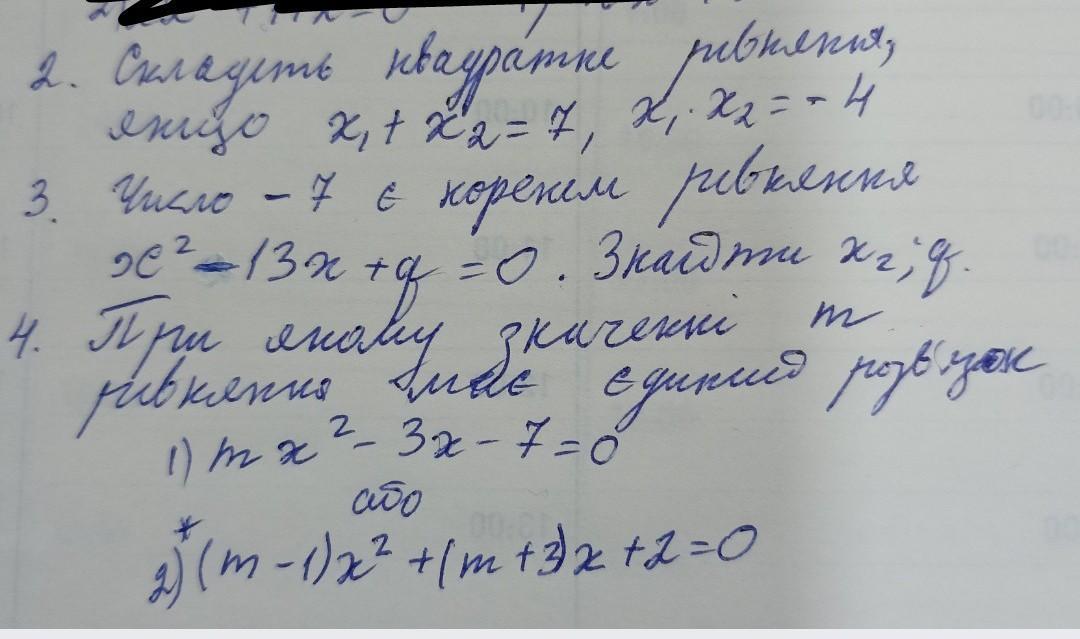 2. Складіть квадратне рівняння,
якщо x₁ + x₂ = 7, x₁ · x₂ = - 4
3. Число - 7 є коренем рівняння
x² - 13x + q = 0. Знайдіть x₂; q.
4. При якому значенні m
рівняння має єдиний розв'язок
1) mx² - 3x - 7 = 0
або
2)* (m - 1)x² + (m + 3)x + 2 = 0